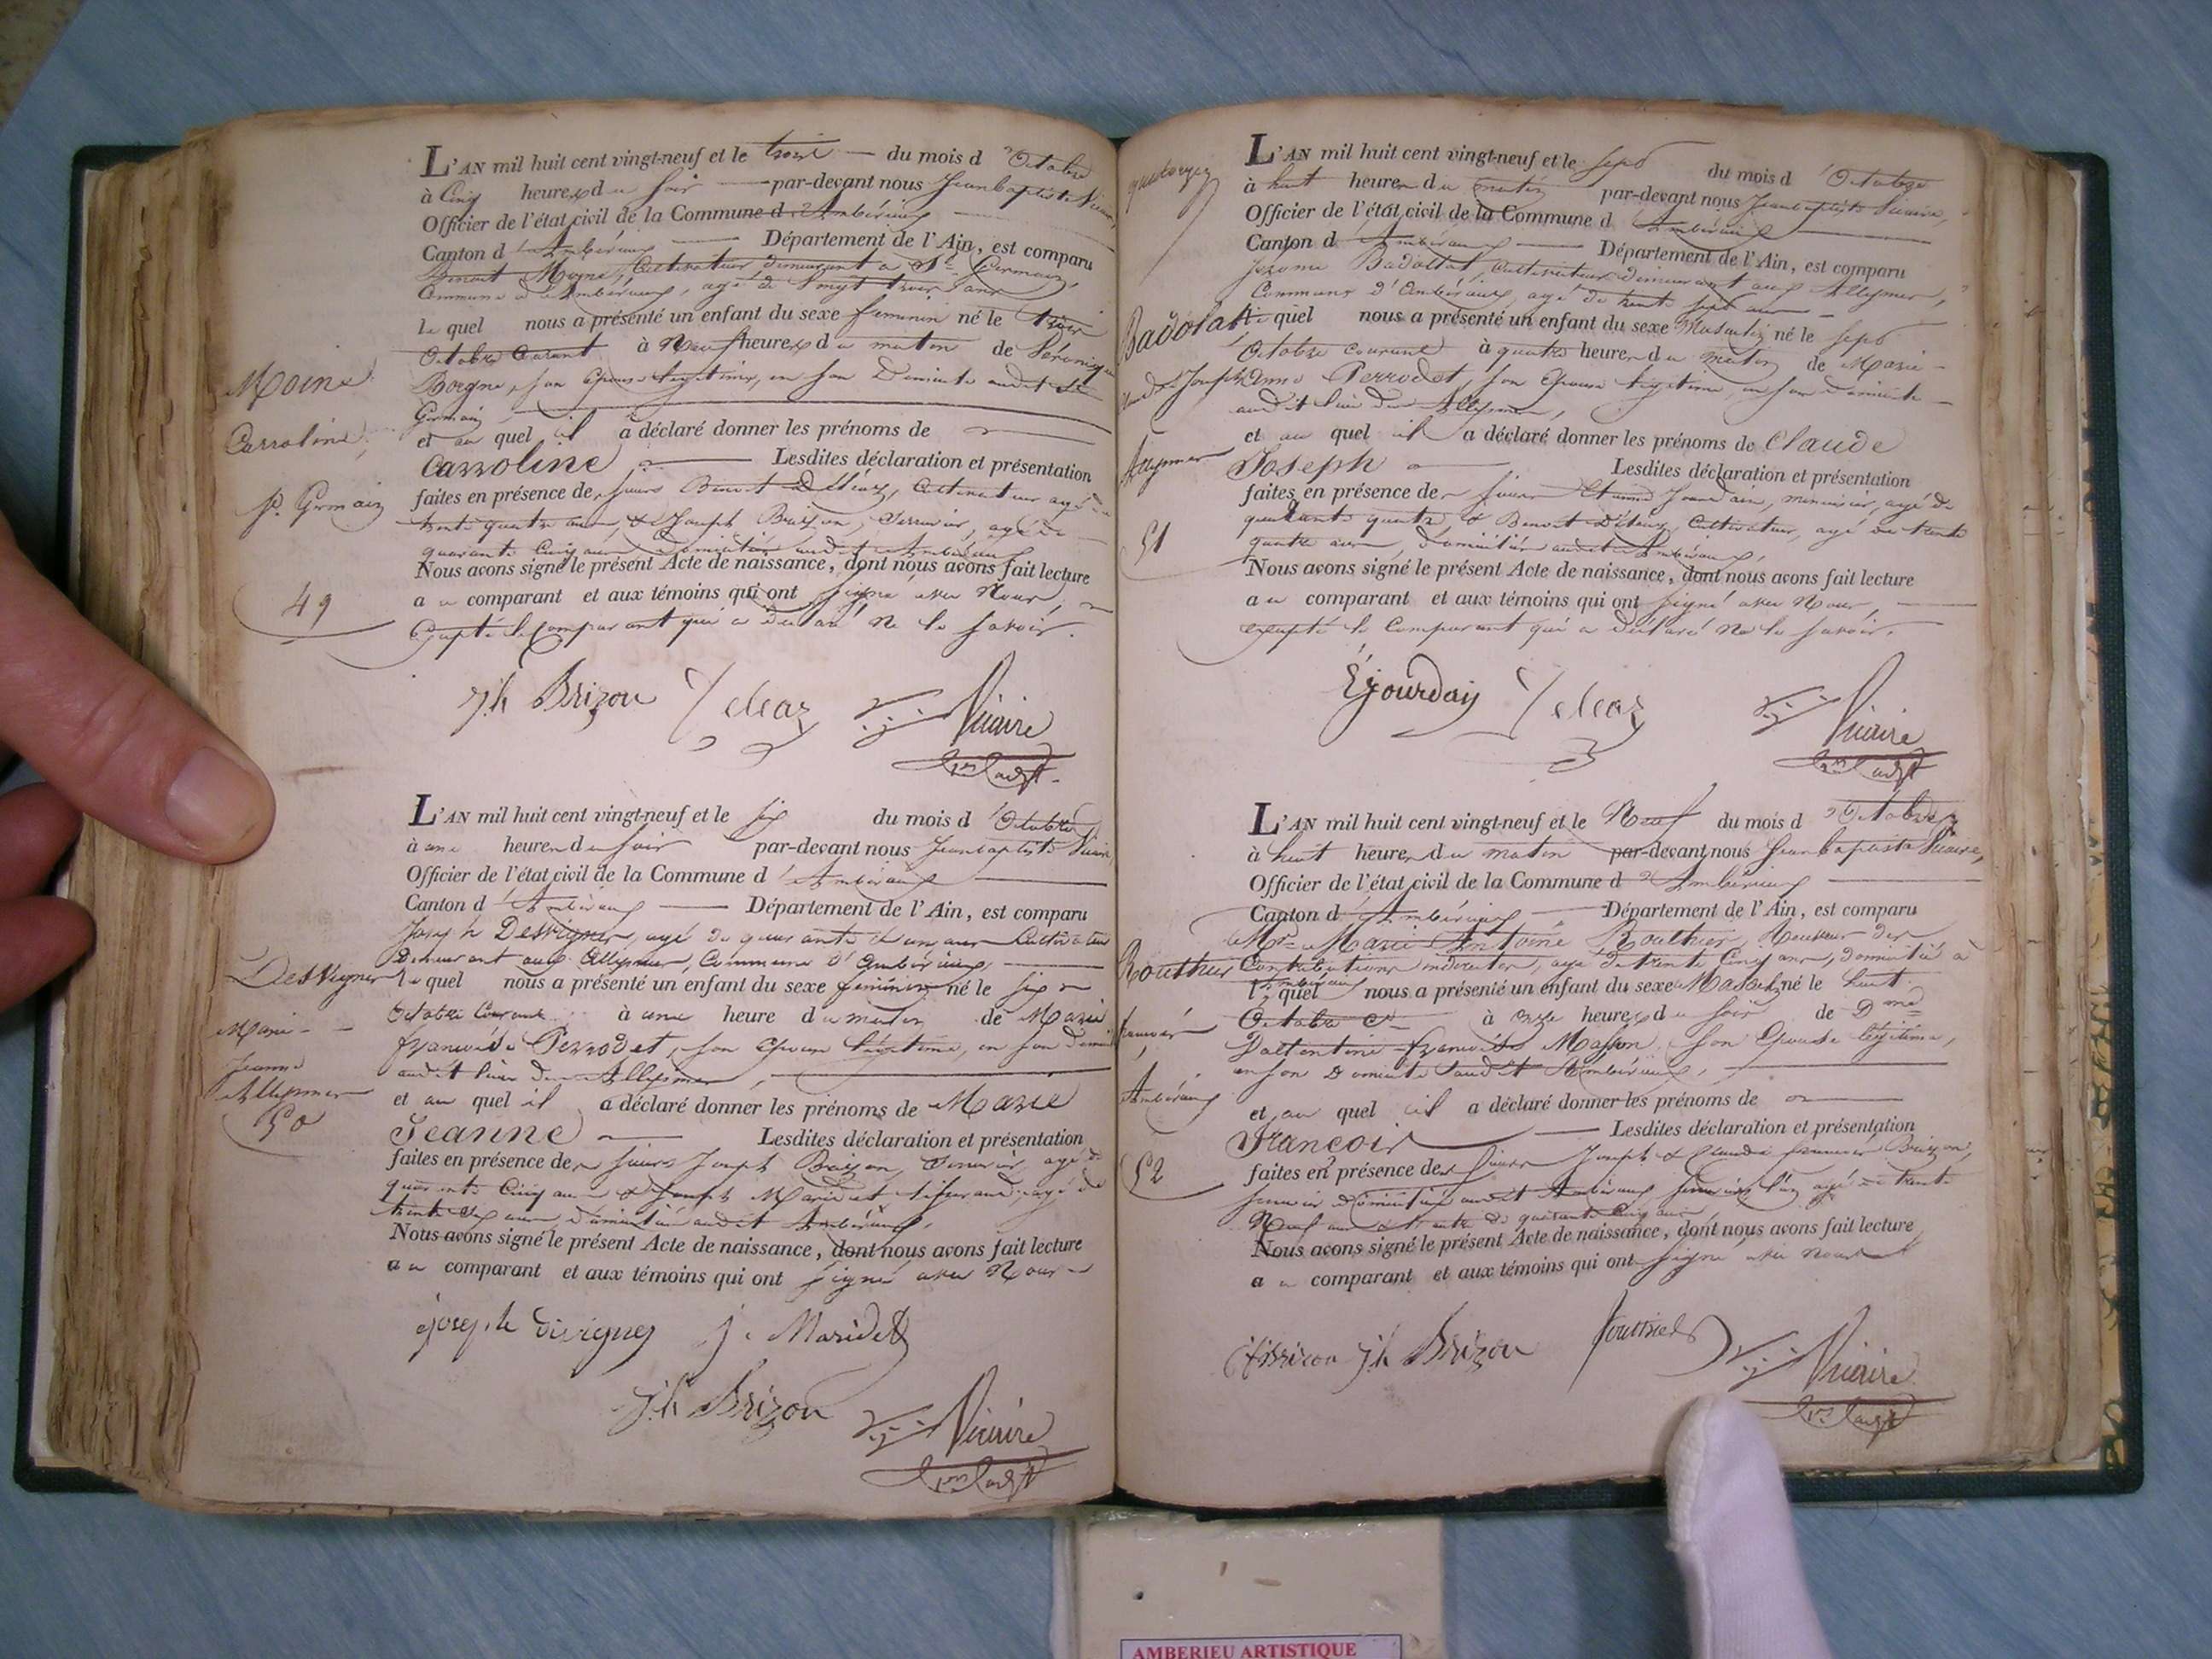 Moine
Carroline
St. Germain
49
L'AN mil huit cent vingt-neuf et le trois du mois d'Octobre
à Cinq heures du soir par-devant nous Jean baptiste Vicaire,
Officier de l'état civil de la Commune d'Ambérieux
Canton d'Ambérieux Département de l'Ain, est comparu
Benoit Moine, Cultivateur demeurant à St. Germain,
Commune d'Ambérieux, agé de vingt trois ans
lequel nous a présenté un enfant du sexe feminin né le trois
Octobre Courant à Neuf heures du matin de Véronique
Borgne, son Epouse legitime, en son Domicile audit St.
Germain
et au quel il a déclaré donner les prénoms de
Carroline Lesdites déclaration et présentation
faites en présence de sieurs Benoit Déléaz, Cultivateur agé de
trente quatre ans, & Joseph Brizon, Serrurier, agé de
quarante Cinq ans domiciliés audit Ambérieux
Nous avons signé le présent Acte de naissance, dont nous avons fait lecture
au comparant et aux témoins qui ont signé avec Nous,
Excepté le Comparant qui a déclaré ne le savoir.
Jh Brizon Deleaz Vicaire
Desvignes
Marie
Jeanne
Allymes
50
L'AN mil huit cent vingt-neuf et le six du mois d'Octobre
à une heure du soir par-devant nous Jean baptiste Vicaire
Officier de l'état civil de la Commune d'Ambérieux
Canton d'Ambérieux Département de l'Ain, est comparu
Joseph Desvignes, agé de quarante & un ans Cultivateur
Demeurant aux Allymes, Commune d'Ambérieux,
lequel nous a présenté un enfant du sexe feminin né le six
Octobre Courant à une heure du matin de Marie
françoise Perrodet, son Epouse legitime, en son domicile
audit lieu des Allymes,
et au quel il a déclaré donner les prénoms de Marie
Jeanne Lesdites déclaration et présentation
faites en présence de sieurs Joseph Brizon, Serrurier, agé de
quarante Cinq ans & Joseph Maridet, agé de
trente six ans, domiciliés audit Ambérieux,
Nous avons signé le présent Acte de naissance, dont nous avons fait lecture
au comparant et aux témoins qui ont signé avec Nous
joseph divignes j. Maridet
Jh Brizon Vicaire
Badolat
Claude Joseph
Allymes
51
L'AN mil huit cent vingt-neuf et le sept du mois d'Octobre
à huit heures du matin par-devant nous Jean baptiste Vicaire,
Officier de l'état civil de la Commune d'Ambérieux
Canton d'Ambérieux Département de l'Ain, est comparu
Jerome Badollat, Cultivateur demeurant aux Allymes,
Commune d'Ambérieux, agé de trente sept ans
lequel nous a présenté un enfant du sexe Masculin né le sept
Octobre courant à quatre heures du matin de Marie
Anne Perrodet son Epouse legitime, en son Domicile
audit lieu des Allymes,
et au quel il a déclaré donner les prénoms de Claude
Joseph Lesdites déclaration et présentation
faites en présence de sieurs Etienne Jourdain, menuisier, agé de
quarante quatre, & Benoit Déléaz, Cultivateur, agé de trente
quatre ans, domiciliés audit Ambérieux,
Nous avons signé le présent Acte de naissance, dont nous avons fait lecture
au comparant et aux témoins qui ont signé avec Nous,
excepté le Comparant qui a déclaré ne le savoir.
E jourdain Deleaz Vicaire
Routhier
françois
Ambérieux
52
L'AN mil huit cent vingt-neuf et le Neuf du mois d'Octobre
à huit heures du matin par-devant nous Jean baptiste Vicaire,
Officier de l'état civil de la Commune d'Ambérieux
Canton d'Ambérieux Département de l'Ain, est comparu
Mr. Marie Antoine Routhier, Receveur des
Contributions indirectes, agé de trente Cinq ans, domicilié à
Ambérieux
lequel nous a présenté un enfant du sexe Masculin né le huit
Octobre Ct à onze heures du soir de Dme
françoise Masson son Epouse légitime,
en son Domicile audit Ambérieux,
et au quel il a déclaré donner les prénoms de
François Lesdites déclaration et présentation
faites en présence de sieurs Joseph & Claude françois Brizon,
domiciliés audit Ambérieux, agé de trente
Neuf ans & l'autre de quarante Cinq ans
Nous avons signé le présent Acte de naissance, dont nous avons fait lecture
au comparant et aux témoins qui ont signé avec nous
Brizon Jh Brizon Routhier Vicaire
AMBERIEU ARTISTIQUE